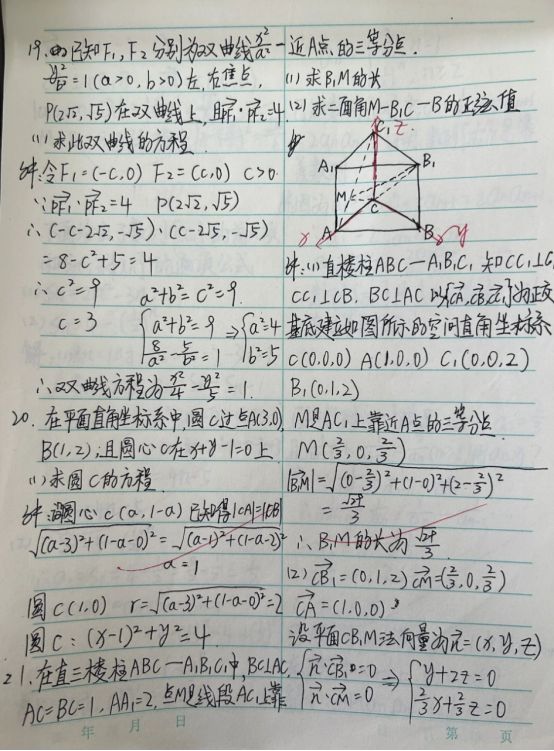 19. 已知F₁, F₂分别为双曲线x²/a² -
y²/b² = 1 (a>0, b>0) 左, 右焦点,
P(2√2, √5)在双曲线上, 且PF₁·PF₂=4.
(1) 求此双曲线的方程
解: 令F₁=(-c,0) F₂=(c,0) c>0
∵PF₁·PF₂=4 P(2√2, √5)
∴(-c-2√2, -√5)·(c-2√2, -√5)
=8-c²+5=4
∴c²=9 a²+b²=c²=9.
c=3 {a²+b²=9 8/a² - 5/b² = 1 ⇒ {a²=4 b²=5
∴双曲线方程为x²/4 - y²/5 = 1.
20. 在平面直角坐标系中, 圆C过点A(3,0),
B(1,2); 且圆心C在x+y-1=0上
(1) 求圆C的方程
解: 设圆心C(a,1-a) 已知得|CA|=|CB|
√(a-3)²+(1-a-0)² = √(a-1)²+(1-a-2)²
a=1
圆C(1,0) r=√(a-3)²+(1-a-0)²=2
圆C: (x-1)²+y²=4
21. 在直三棱柱ABC-A₁B₁C₁中, BC⊥AC,
AC=BC=1, AA₁=2, 点M是线段AC₁上靠
近A点的三等分点.
(1) 求B₁M的长
(2) 求二面角M-B₁C-B的正弦值
C₁ z
A₁ B₁
M
C
x A B y
解: (1) 直棱柱ABC-A₁B₁C₁ 知CC₁⊥CA
CC₁⊥CB, BC⊥AC 以{CA, CB, CC₁}为正交
基底建立如图所示的空间直角坐标系
C(0,0,0) A(1,0,0) C₁(0,0,2)
B₁(0,1,2)
M是AC₁上靠近A点的三等分点
M(2/3, 0, 2/3)
|B₁M|=√(0-2/3)²+(1-0)²+(2-2/3)²
=√29/3
∴B₁M的长为√29/3.
(2) CB₁=(0,1,2) CM=(2/3,0,2/3)
CA=(1,0,0)
设平面CB₁M法向量为n=(x,y,z)
{n·CB₁=0 n·CM=0 ⇒ {y+2z=0 2/3x+2/3z=0
年 月 日 第 页